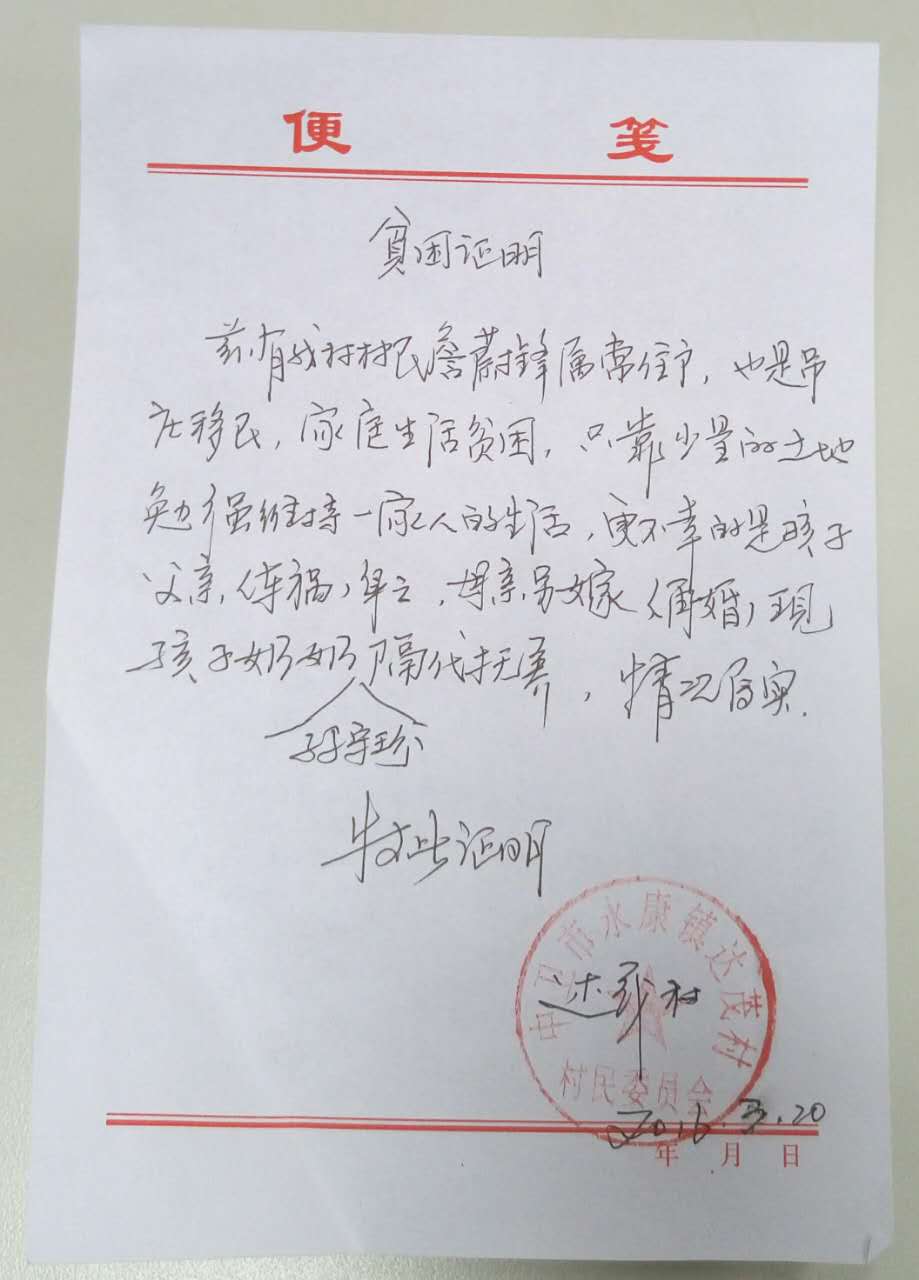 便 笺
贫困证明
兹有我村村民詹蔚锋属常住户，也是吊
庄移民，家庭生活贫困，只靠少量的土地
勉强维持一家人的生活，更不幸的是孩子
父亲，车祸，身亡，母亲另嫁（再婚）现
孩子奶奶隔代抚养，情况属实.
特此证明
中卫市永康镇达茂村
村
村民委员会
2016.3.20
年 月 日